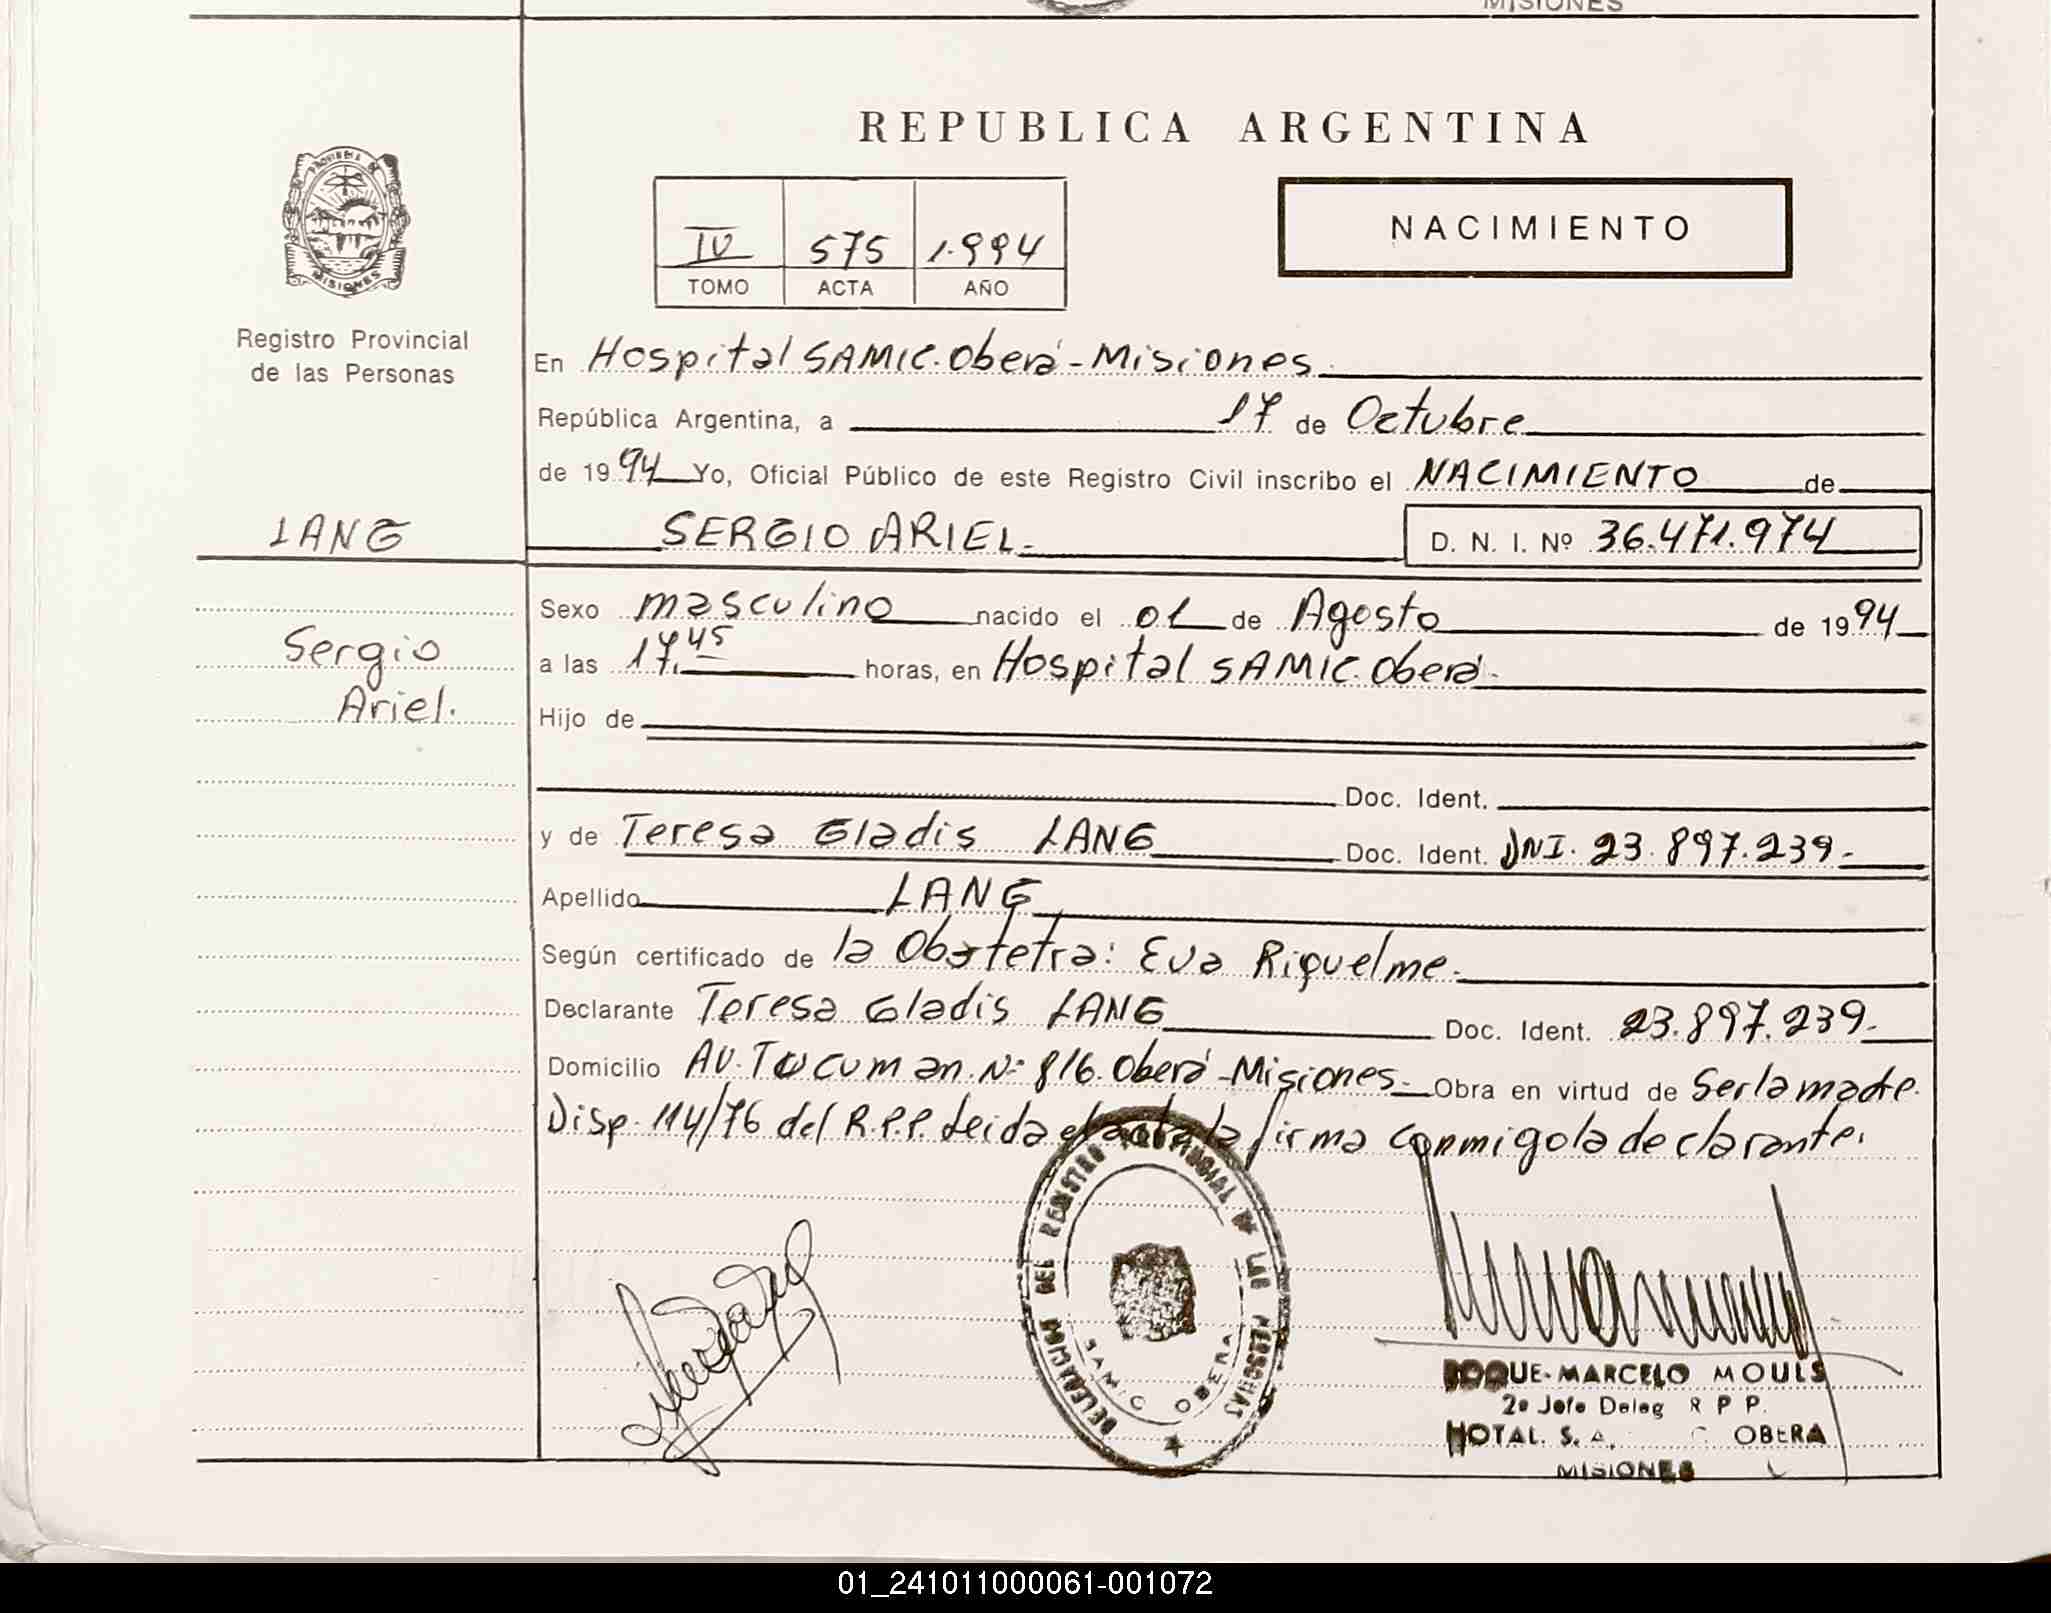 MISIONES
REPUBLICA ARGENTINA
PROVINCIA DE
MISIONES
IV 575 1.994
TOMO ACTA AÑO
NACIMIENTO
Registro Provincial
de las Personas
En Hospital SAMIC. Oberá - Misiones.
República Argentina, a 17 de Octubre
de 1994 Yo, Oficial Público de este Registro Civil inscribo el NACIMIENTO de
LANG SERGIO ARIEL. D. N. I. Nº 36.471.974
Sexo masculino nacido el 01 de Agosto de 1994
Sergio
Ariel.
a las 17.45 horas, en Hospital SAMIC. Oberá.
Hijo de
Doc. Ident.
y de Teresa Gladis LANG Doc. Ident. DNI. 23.897.239.-
Apellido LANG
Según certificado de la Obstetra: Eva Riquelme.
Declarante Teresa Gladis LANG Doc. Ident. 23.897.239.-
Domicilio AV. Tucuman. Nº 816. Oberá - Misiones. Obra en virtud de Ser la madre.
Disp. 114/76 del R.P.P. Leida el acta la firma conmigo la declarante.
DELEGACION DEL REGISTRO PROVINCIAL DE LAS PERSONAS
SAMIC OBERA
ROQUE-MARCELO MOULS
2º Jefe Deleg R P P.
HOTAL. S. A. C OBERA
MISIONES
01_241011000061-001072